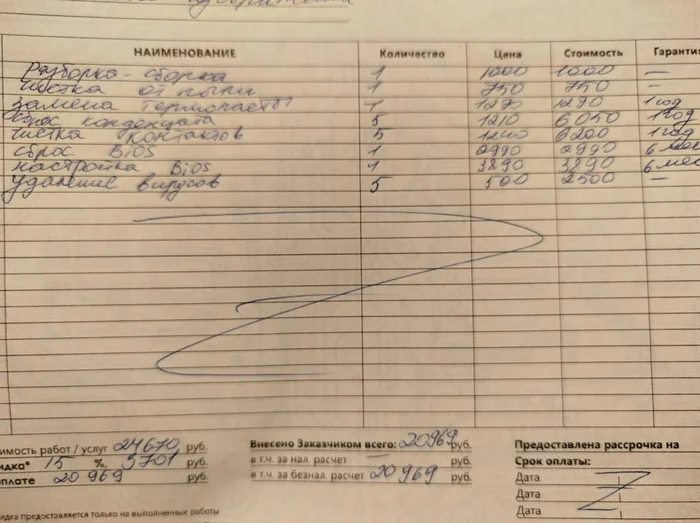 НАИМЕНОВАНИЕ Количество Цена Стоимость Гарантия
Разборка-сборка 1 1000 1000 —
Чистка от пыли 1 750 750 —
Замена термопасты 1 1290 1290 1 год
Сброс конденцата 5 1210 6050 1 год
Чистка контактов 5 1240 6200 1 год
Сброс BIOS 1 2990 2990 6 мес
Настройка BiOS 1 3890 3890 6 мес
Удаление вирусов 5 500 2500 —
имость работ / услуг 24670 руб. Внесено Заказчиком всего: 20969 руб. Предоставлена рассрочка на
идка* 15 %, 3701 руб. в т.ч. за нал. расчет — руб. Срок оплаты:
плате 20 969 руб. в т.ч. за безнал. расчет 20 969 руб. Дата
Дата
Дата
идка предоставляется только на выполненные работы